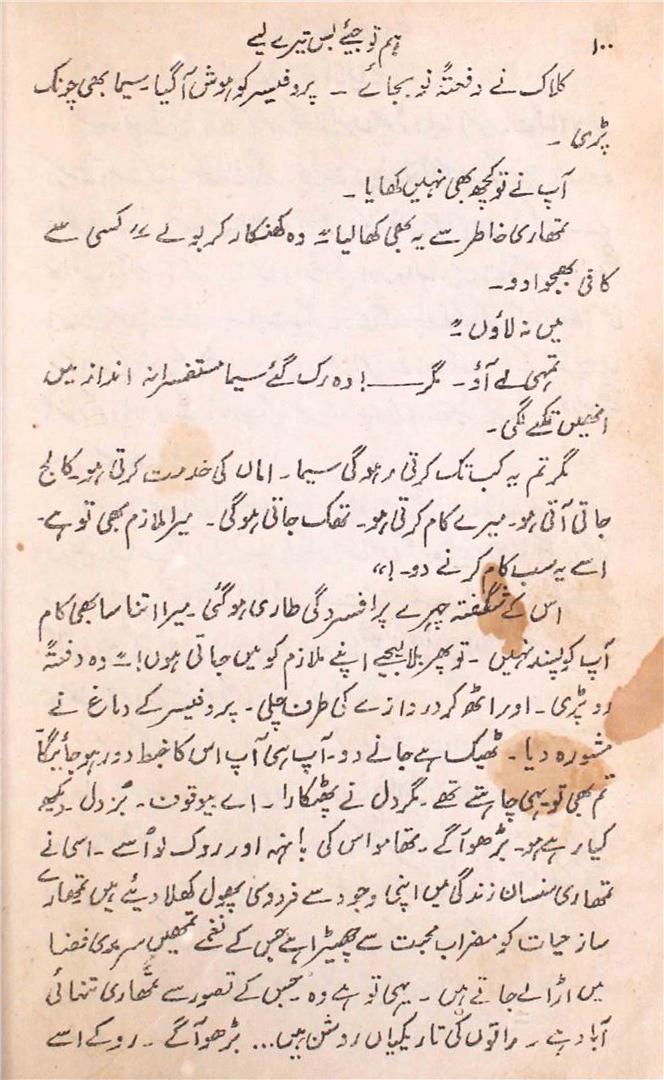 ۱۰۰
ہم تو جیئے بس تیرے لیے
کلاک نے دفعتہً نو بجائے ۔ پروفیسر کو ہوش آ گیا۔ سیما بھی چونک
پڑی ۔
آپ نے تو کچھ بھی نہیں کھایا ۔
تمھاری خاطر سے یہ بھی کھا لیا " وہ کھنکار کر بولے " کسی سے
کافی بھجوا دو ۔
میں نہ لاؤں "
تمہی لے آؤ ۔ مگر ــــــ ! وہ رک گئے سیما مستفسرانہ انداز میں
انھیں تکنے لگی ۔
مگر تم یہ کب تک کرتی رہو گی سیما ۔ اماں کی خدمت کرتی ہو ۔ کالج
جاتی آتی ہو ۔ میرے کام کرتی ہو ۔ تھک جاتی ہوگی ۔ میرا ملازم بھی تو ہے ۔
اسے یہ سب کام کرنے دو ۔ !"
اس کے شگفتہ چہرے پر افسردگی طاری ہوگئی ۔ میرا اتنا سا بھی کام
آپ کو پسند نہیں ۔ تو پھر بلا لیجیے اپنے ملازم کو میں جاتی ہوں ! " وہ دفعتہً
رو پڑی ۔ اور اٹھ کر دروازے کی طرف چلی ۔ پروفیسر کے دماغ نے
مشورہ دیا ۔ ٹھیک ہے جانے دو ۔ آپ ہی آپ اس کا خبط دور ہو جائیگا
تم بھی تو یہی چاہتے تھے ۔ مگر دل نے پھٹکارا ۔ اے بیوقوف ۔ بُزدل ۔ دیکھ
کیا رہے ہو ۔ بڑھو آگے ۔ تھامو اس کی بانہہ اور روک لو اُسے ۔ اسی نے
تمھاری سنسان زندگی میں اپنی وجود سے فردوسی پھول کھلا دیئے ہیں تمھارے
ساز حیات کو مضراب محبت سے چھیڑا ہے جس کے نغمے تمھیں سرمدی فضا
میں اڑا لے جاتے ہیں ۔ یہی تو ہے وہ جس کے تصور سے تمھاری تنہائی
آباد ہے ۔ راتوں کی تاریکیاں روشن ہیں ... بڑھو آگے ۔ روکے اسے